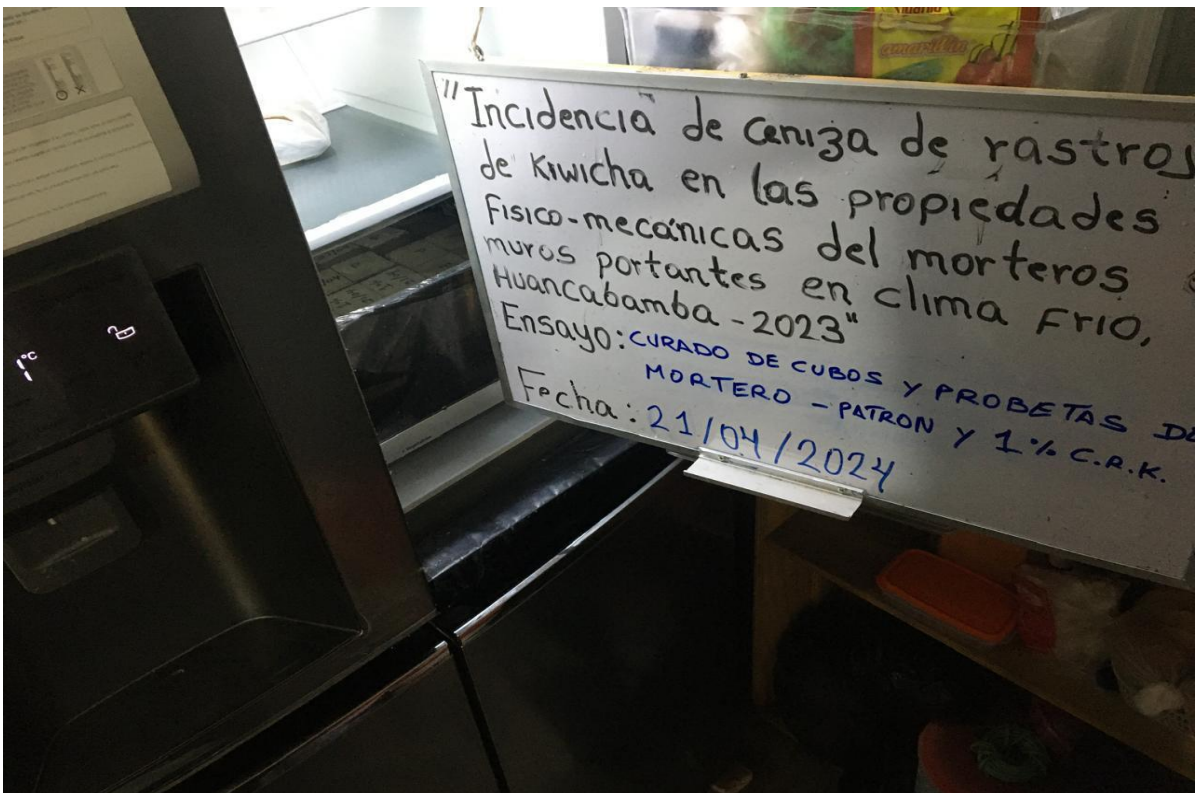 "Incidencia de ceniza de rastroj
de Kiwicha en las propiedades
Fisico-mecánicas del morteros
muros portantes en clima Frio,
Huancabamba - 2023"
Ensayo: CURADO DE CUBOS Y PROBETAS DE
MORTERO - PATRON Y 1% C.R.K.
Fecha: 21/04/2024
amarillo
1°C